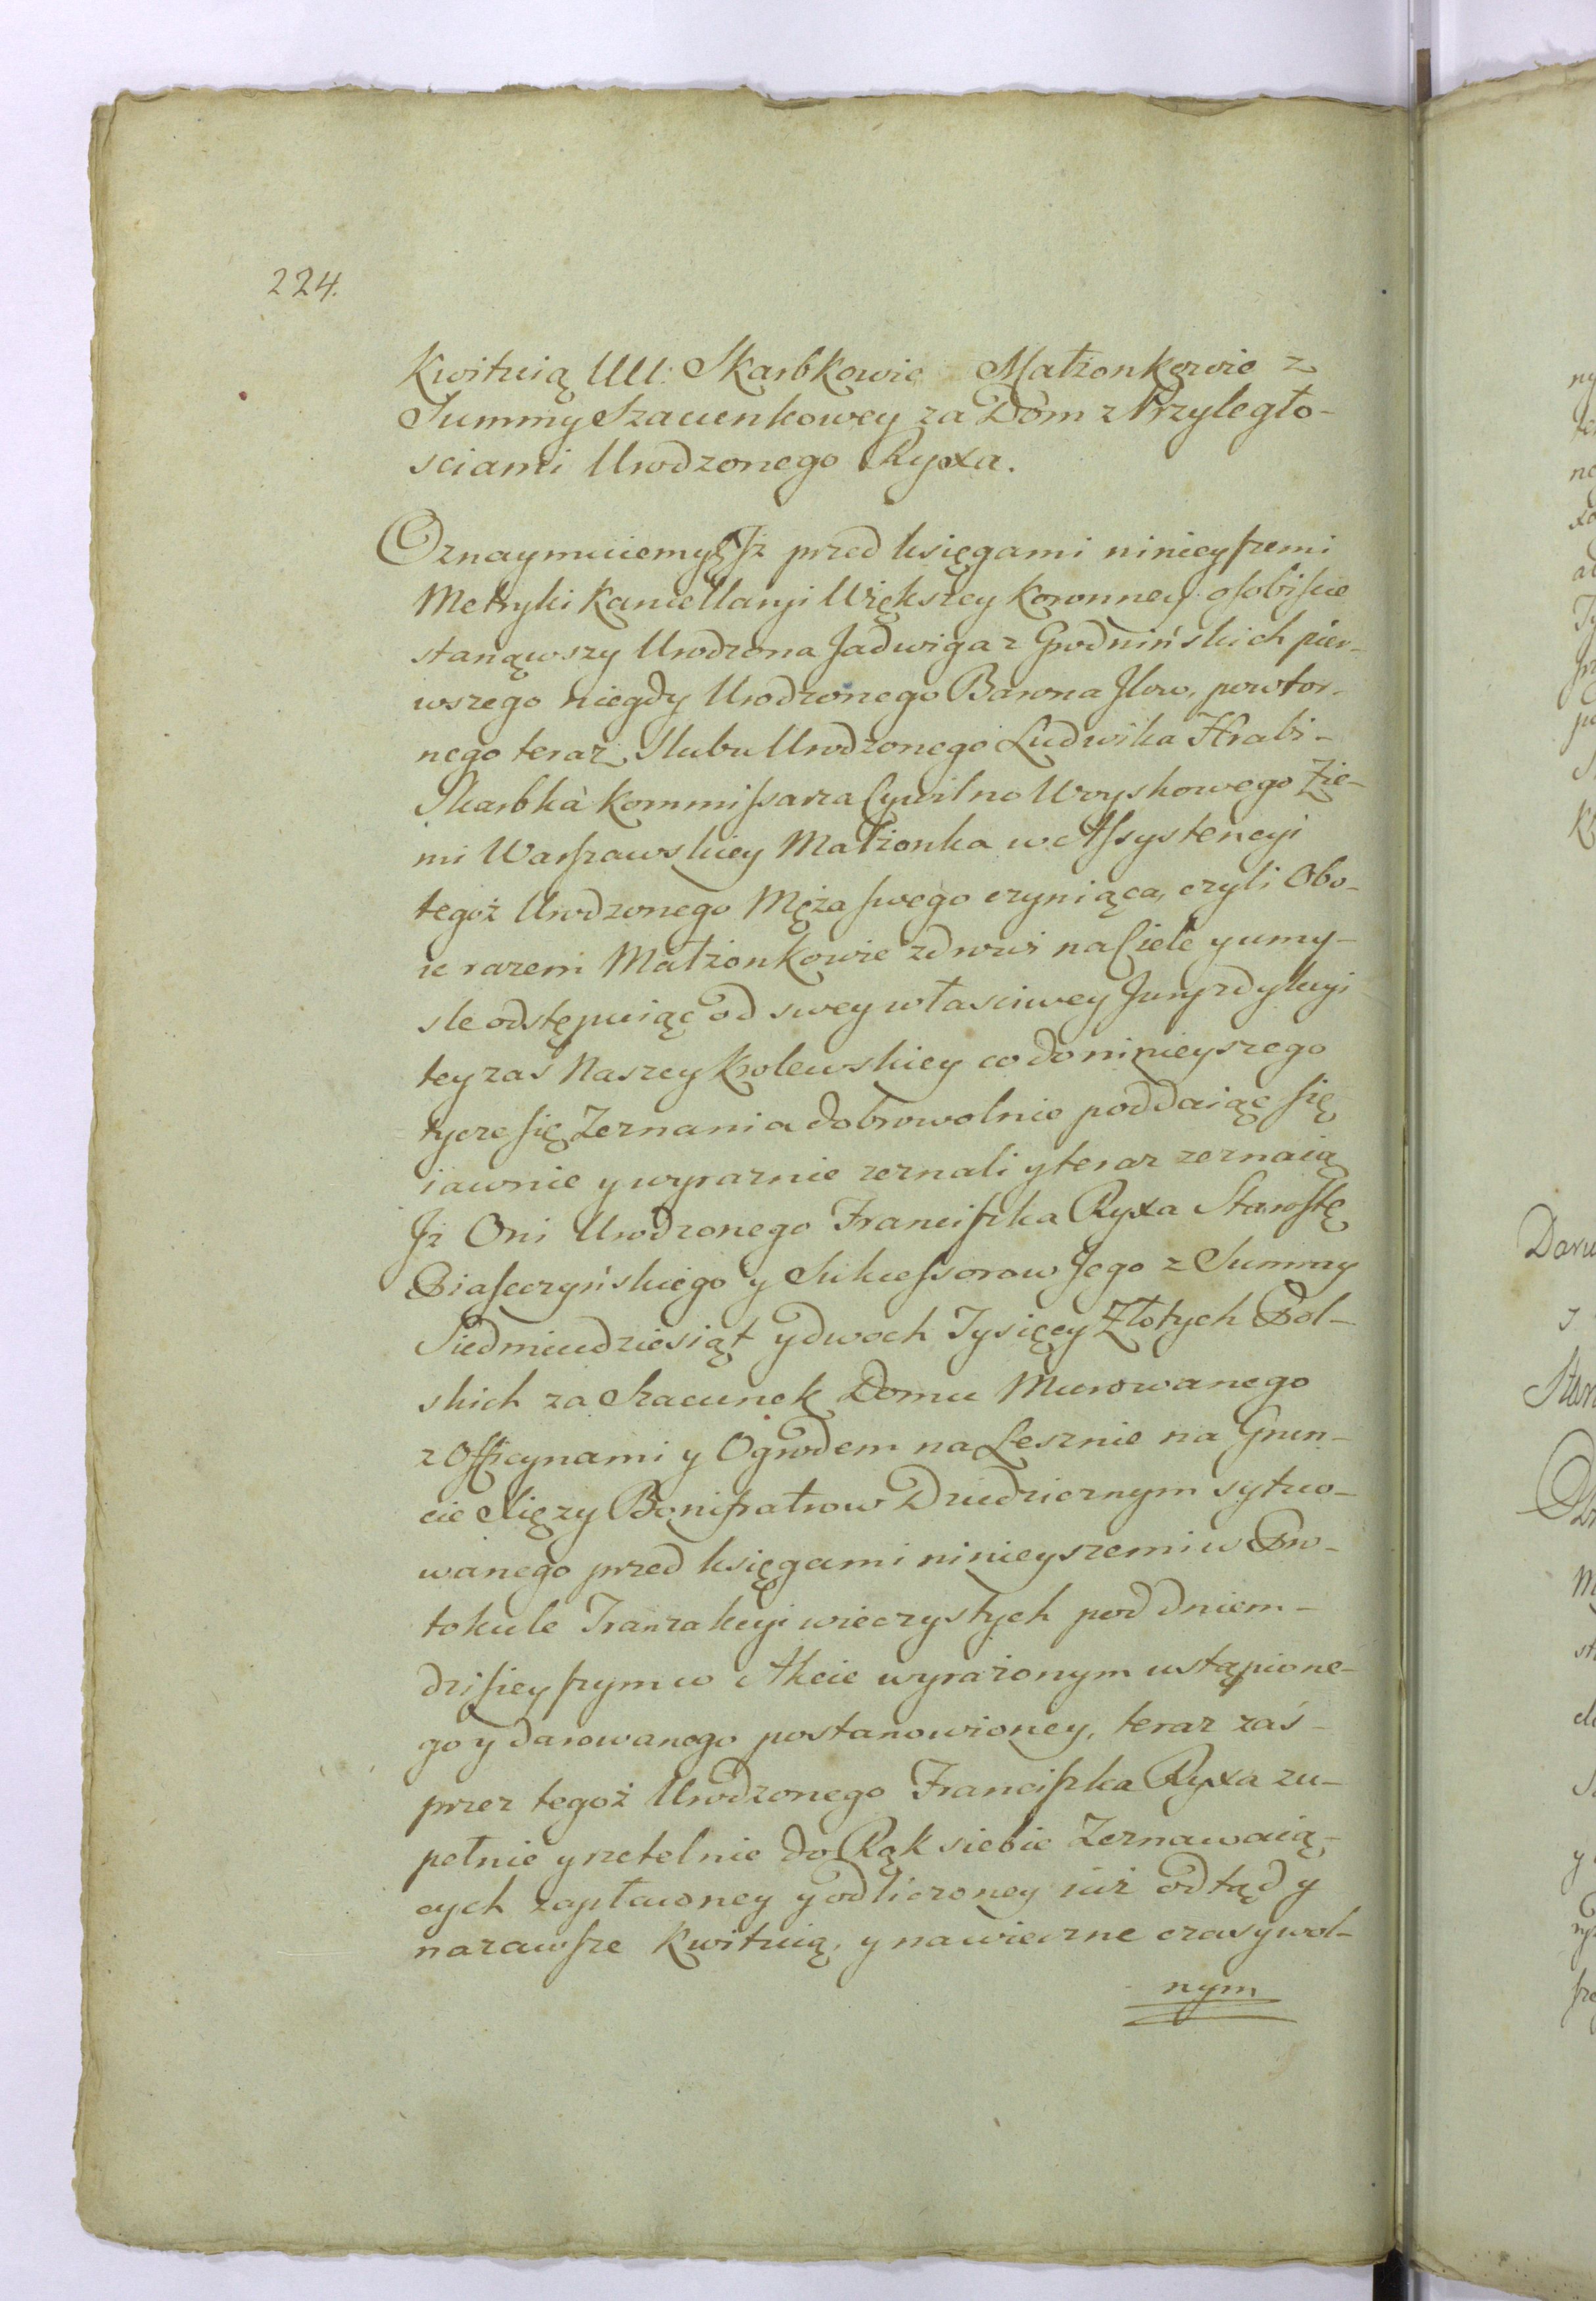 224.
Kwituią UU: Skarbkowie Małżonkowie z
Summy Szacunkowey za Dom z Przyległo-
sciami Urodzonego Ryxa.
Oznaymuiemy Iż przed księgami ninieyszemi
Metryki Kancellaryi Większey Koronney osobiscie
stanąwszy Urodzona Jadwiga z Grodnińskich pier-
wszego niegdy Urodzonego Barona powtor-
nego teraz Slubu Urodzonego Ludwika Hrabi-
Skarbka Kommissarza Cywilno Woyskowego Zie-
mi Warszawskiey Małżonka w Assystencyi
tegoż Urodzonego Męża swego czyniąca, czyli Obo-
ie razem Małżonkowie zdrowi na Ciele y umy-
sle odstępuiąc od swey własciwey Juryzdykcyi
tey zas Naszey Krolewskiey co do ninieyszego
tycze się Zeznania dobrowolnie poddaiąc się
iawnie y wyraznie zeznali y teraz zeznaią
Iż Oni Urodzonego Franciszka Ryxa Starostę
Piaseczyńskiego y Sukcessorow Jego z Summy
Siedmiudziesiąt y dwoch Tysięcy Złotych Pol-
skich za Szacunek Domu Murowanego
z Officynami y Ogrodem na Lesznie na Grun-
cie Xięzy Bonifratrow Dziedzicznym sytuo-
wanego przed księgami ninieyszemi w Pro-
tokule Tranzakcyi wieczystych pod dniem-
dzisieyszym w Akcie wyrażonym ustąpione-
go y darowanego postanowioney, teraz zaś-
przez tegoż Urodzonego Franciszka Ryxa zu-
pełnie y rzetelnie do Rąk siebie Zeznawaią-
cych zapłaconey y odliczoney iuż odtąd y
nazawsze Kwituią, y na wieczne czasy wol-
nym